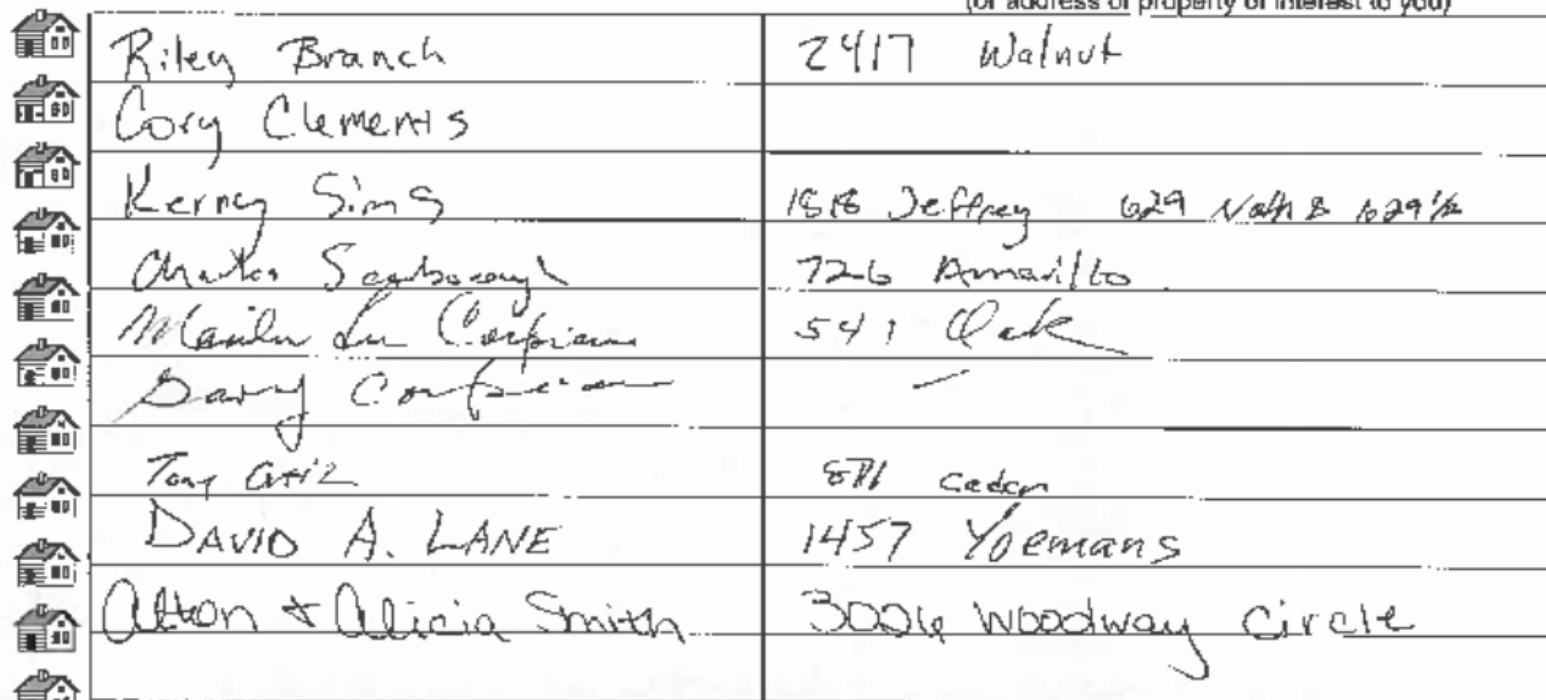 (or address of property of interest to you)
Riley Branch 2417 Walnut
Cory Clements
Kerney Sims 1818 Jeffrey 629 & 629 1/2
Charles Scarborough 726 Amarillo
Lu 541 Oak
Gary —
Tony Ortiz 871 Cedar
DAVID A. LANE 1457 Yoemans
Alton + Alicia Smith 3006 Woodway Circle